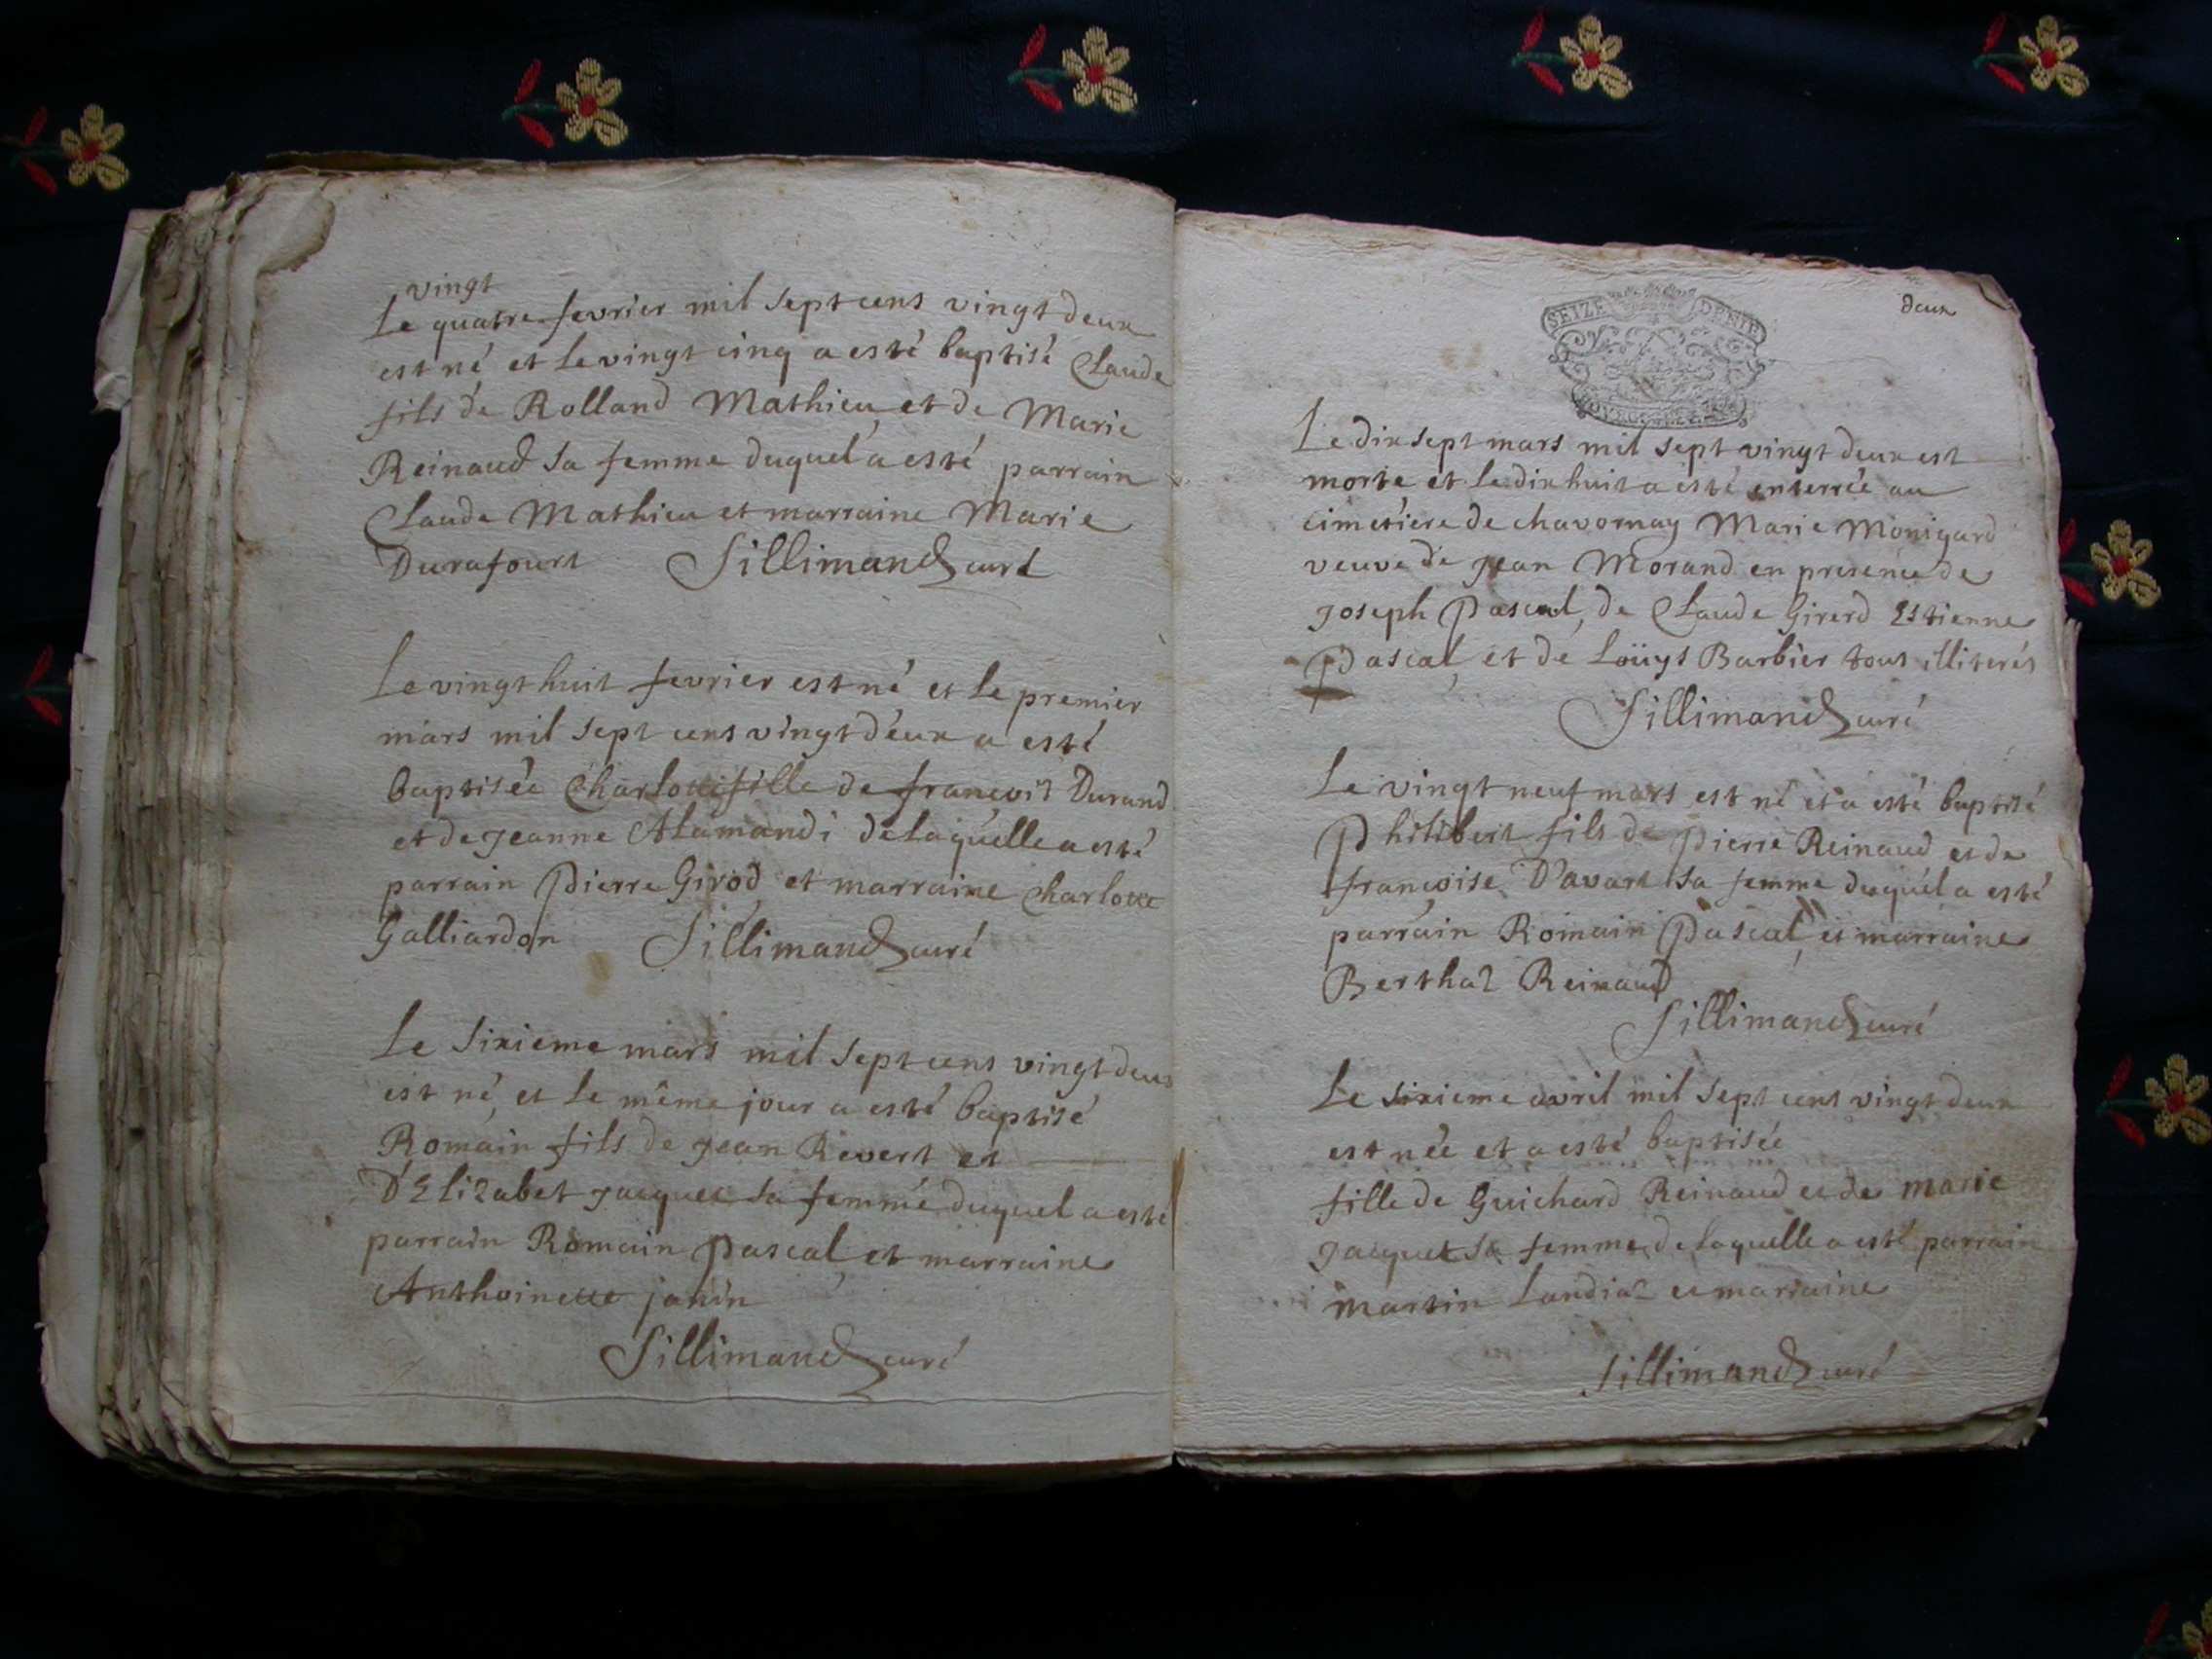 vingt
Le quatre fevrier mil sept cens vingt deux
est né et le vingt cinq a esté baptisé Claude
fils de Rolland Mathieu et de Marie
Reinaud sa femme duquel a esté parrain
Claude Mathieu et marraine Marie
Durafourt Sillimand curé
Le vingt huit fevrier est né et le premier
mars mil sept cens vingt deux a esté
baptisée Charlotte fille de francois Durand
et de jeanne Alamandi de laquelle a esté
parrain Pierre Girod et marraine Charlotte
Galliardon Sillimand curé
Le sixieme mars mil sept cens vingt deux
est né, et le même jour a esté baptisé
Romain fils de jean Revert et
D'Elizabet jacquet sa femme duquel a esté
parrain Romain Pascal et marraine
Anthoinette janin
Sillimand curé
deux
SEIZE DENIE
Le dix sept mars mil sept vingt deux est
morte et le dix huit a esté enterrée au
cimetiere de chavornay Marie Monigard
veuve de jean Morand en presence de
joseph Pascal, de Claude Girerd Estienne
Pascal et de Loüys Barbier tous illiterés
Sillimand curé
Le vingt neuf mars est né et a esté baptisé
Philibert fils de Pierre Reinaud et de
francoise Davart sa femme duquel a esté
parrain Romain Pascal et marraine
Berthaz Reinaud
Sillimand curé
Le sixieme avril mil sept cent vingt deux
est née et a esté baptisée
fille de Guichard Reinaud et de marie
jacquet sa femme de laquelle a esté parrain
martin Landiaz et marraine
Sillimand curé